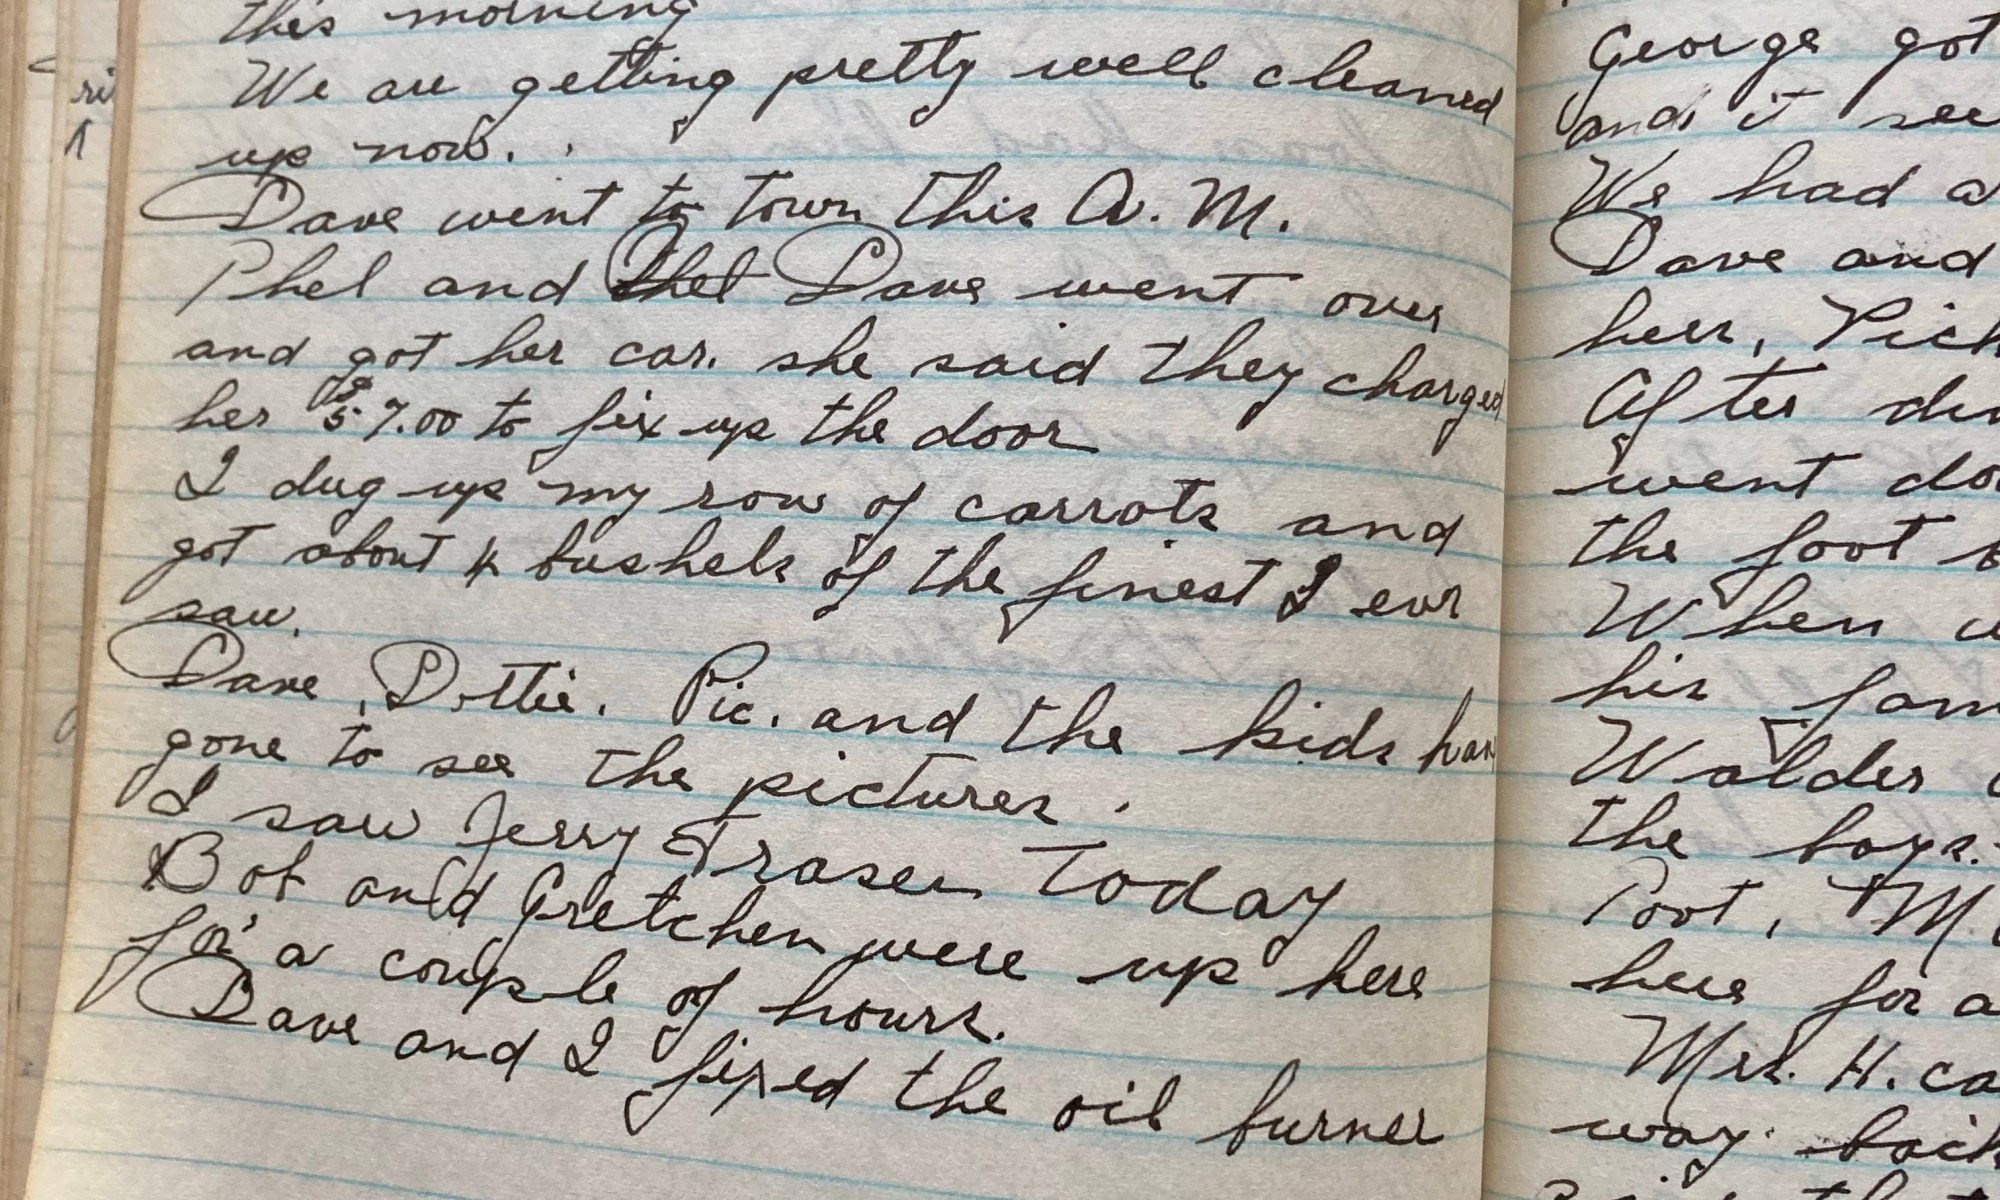 this morning
We are getting pretty well cleaned
up now.
Dave went to town this A.M.
Phel and Dave went over
and got her car. she said they charged
her $57.00 to fix up the door
I dug up my row of carrots and
got about 4 bushels of the finest I evr
saw.
Dave, Dottie. Pic. and the kids hav
gone to see the pictures.
I saw Jerry Fraser today
Bob and Gretchen were up here
for a couple of hours.
Dave and I fixed the oil burner
George got
and it see
We had a
Dave and
here, Pick
After din
went do
the foot
When
his fam
Walder
the boys.
Poot, M
here for a
Mrs. H. ca
way back